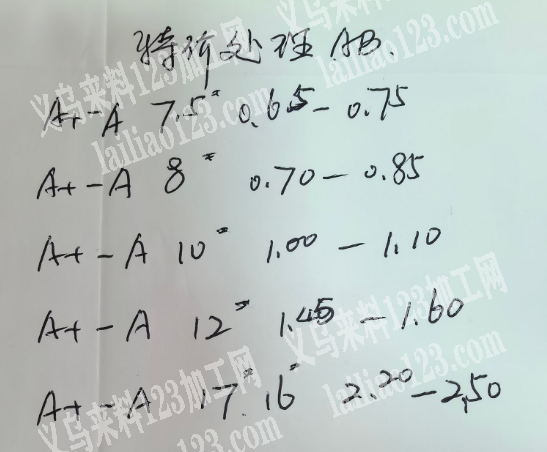 特价处理 AB.
A+-A 7.5" 0.65-0.75
A+-A 8" 0.70-0.85
A+-A 10" 1.00-1.10
A+-A 12" 1.45-1.60
A+-A 17" 16" 2.20-2.50
义乌来料123加工网
lailiao123.com
义乌来料123加工网
lailiao123.com
义乌来料123加工网
lailiao123.com
义乌来料123加工网
lailiao123.com